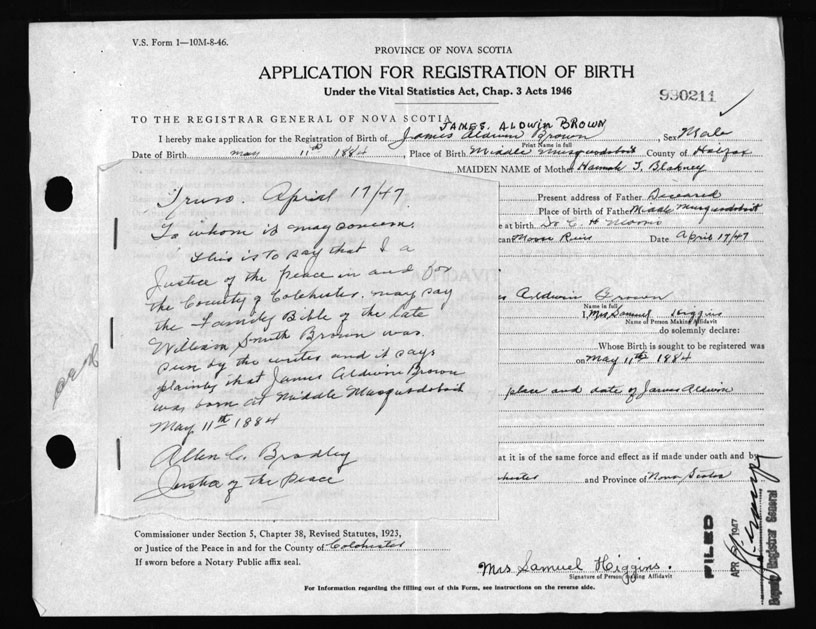 V.S. Form 1—10M-8-46.
PROVINCE OF NOVA SCOTIA
APPLICATION FOR REGISTRATION OF BIRTH
Under the Vital Statistics Act, Chap. 3 Acts 1946
930211
TO THE REGISTRAR GENERAL OF NOVA SCOTIA
JAMES. ALDWIN BROWN
I hereby make application for the Registration of Birth of James Aldwin Brown, Sex Male
Print Name in full
Date of Birth May 11th 1884, Place of Birth Middle Musquodoboit County of Halifax
MAIDEN NAME of Mother Hannah J. Blakney
Present address of Father Deceased
Place of birth of Father Middle Musquodoboit
e at birth Dr C H
can Moose River Date April 17/47
Truro. April 17/47.
To whom it may concern.
This is to say that I a
Justice of the peace in and for
the County of Colchester. may say
the Family Bible of the late
William Smith Brown was
seen by the writer and it says
plainly that James Aldwin Brown
was born at Middle Musquodoboit
May 11th 1884
Allen C. Bradley
Justice of the Peace
es Aldwin Brown
Name in full
I, Mrs Samuel Higgins
Name of Person Making Affidavit
do solemnly declare:
Whose Birth is sought to be registered was
on May 11th 1884
place and date of James Aldwin
at it is of the same force and effect as if made under oath and by
chester and Province of Nova Scotia
Commissioner under Section 5, Chapter 38, Revised Statutes, 1923,
or Justice of the Peace in and for the County of Colchester
If sworn before a Notary Public affix seal.
Mrs Samuel Higgins.
Signature of Person making Affidavit
For Information regarding the filling out of this Form, see instructions on the reverse side.
FILED
APR 1947
Deputy Registrar General